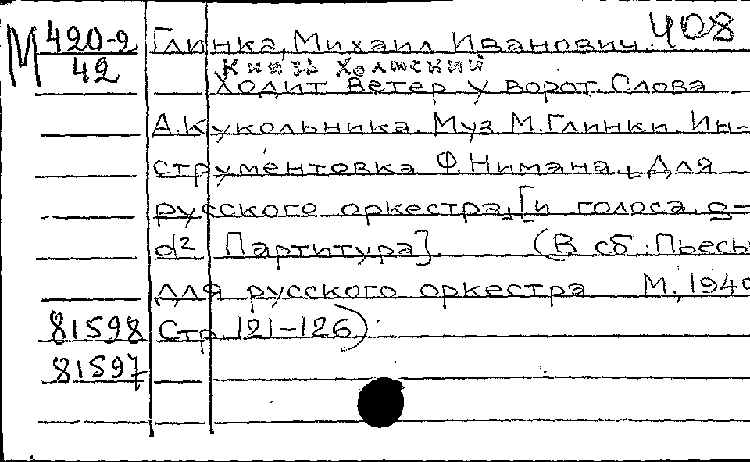 М 420-2 Глинка, Михаил Иванович. 408
42 Князь Холмский
Ходит ветер у ворот. Слова
А. Кукольника. Муз. М. Глинки. Ин-
струментовка Ф. Нимана. Для
русского оркестра, [и голоса g-
d² Партитура]. (В сб.: Пьесы
для русского оркестра М., 1940
81598 Стр. 121-126)
81597